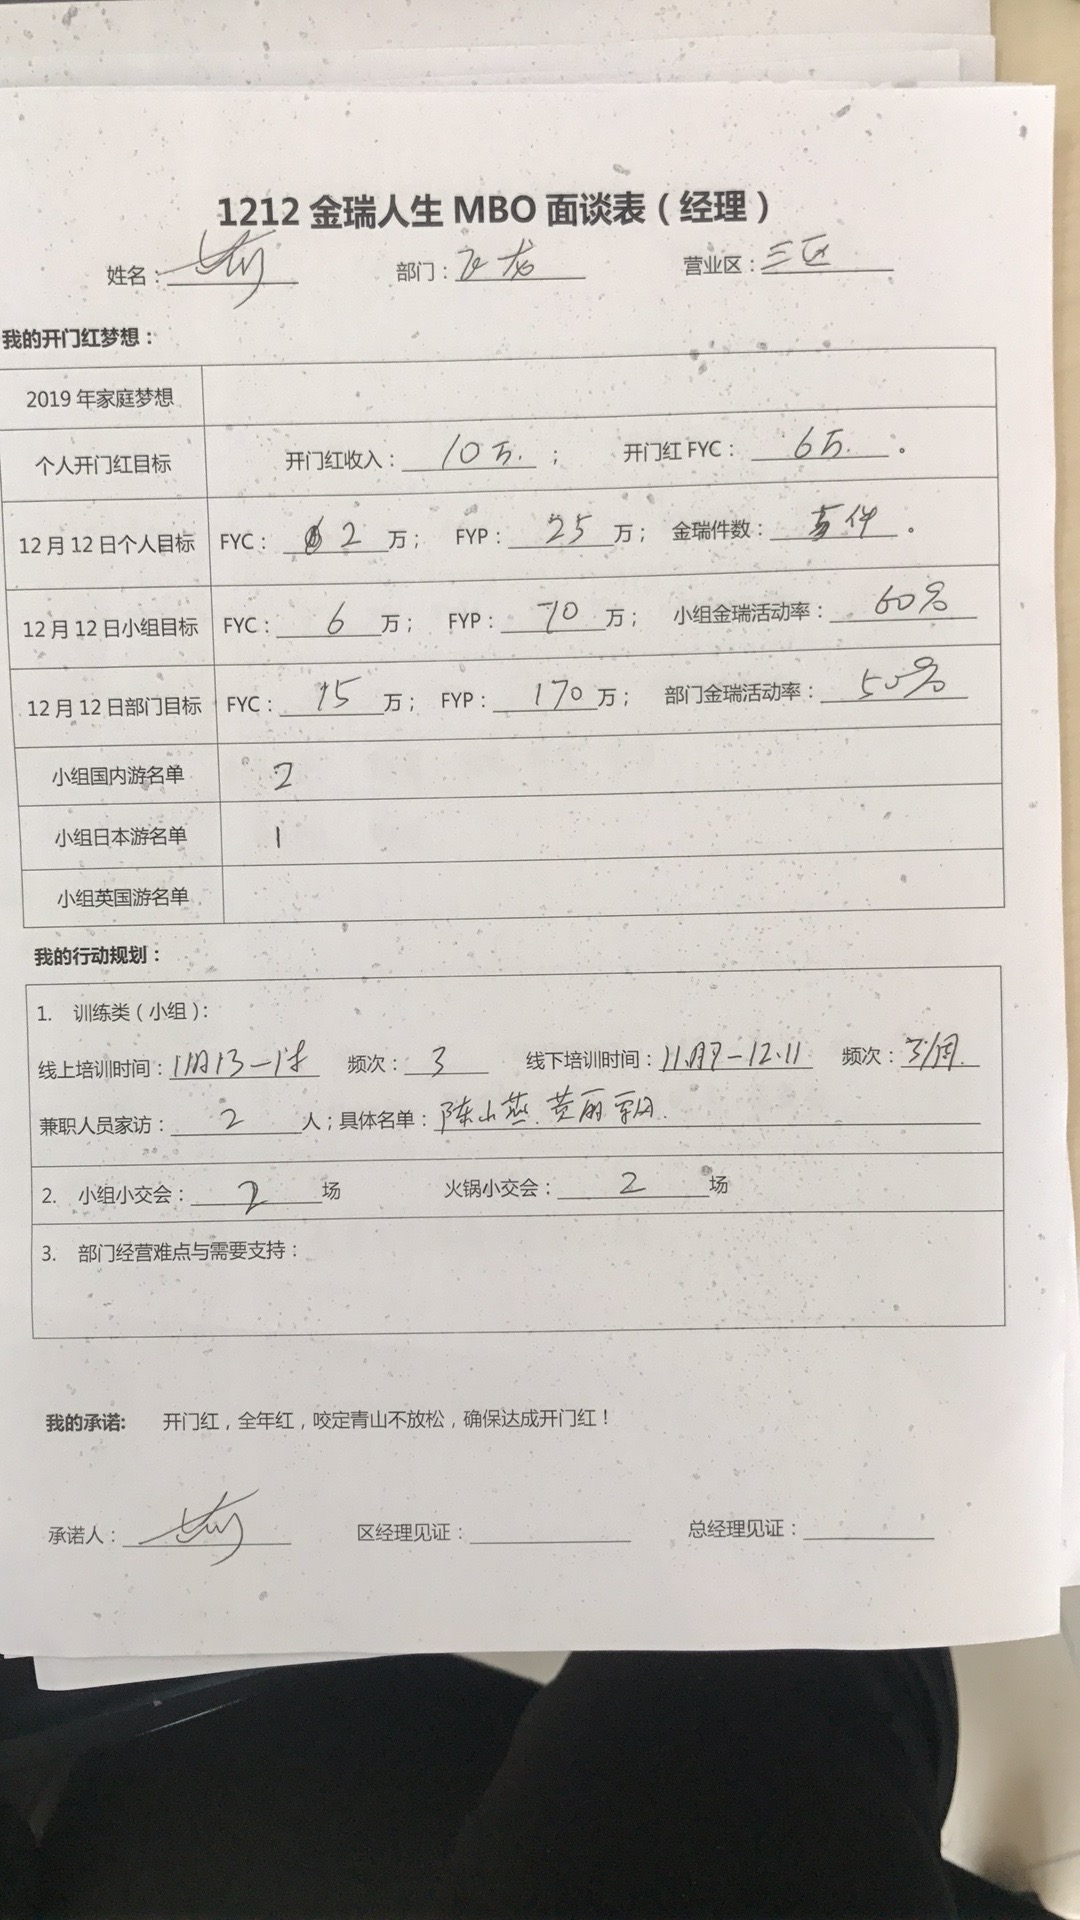 1212 金瑞人生 MBO 面谈表（经理）
姓名： 部门：飞龙 营业区：三区
我的开门红梦想：
2019 年家庭梦想
个人开门红目标 开门红收入：10万. ； 开门红 FYC： 6万. 。
12 月 12 日个人目标 FYC： 2 万； FYP： 25 万； 金瑞件数： 件 。
12 月 12 日小组目标 FYC： 6 万； FYP： 70 万； 小组金瑞活动率： 60%
12 月 12 日部门目标 FYC： 15 万； FYP： 170 万； 部门金瑞活动率： 50%
小组国内游名单 2
小组日本游名单 1
小组英国游名单
我的行动规划：
1. 训练类（小组）：
线上培训时间：11月13－ 频次： 3 线下培训时间：11月9－12.11 频次：3/周.
兼职人员家访： 2 人；具体名单：陈小燕. 黄丽
2. 小组小交会： 2 场 火锅小交会： 2 场
3. 部门经营难点与需要支持：
我的承诺: 开门红，全年红，咬定青山不放松，确保达成开门红！
承诺人： 区经理见证： 总经理见证：